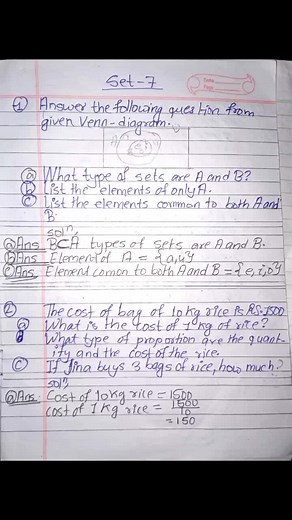 Set-7
① Answer the following question from
given Venn-diagram.
A
ⓐ What type of sets are A and B?
ⓑ List the elements of only A.
ⓒ List the elements common to both A and
B.
soln
ⓐAns B⊂A types of sets are A and B.
ⓑAns: Element of A = {a,u}
ⓒAns: Element comon to both A and B = {e,i,o}
② The cost of bag of 10kg rice is RS.1500
ⓐ What is the cost of 1 kg of rice?
What type of proportion are the quant-
ity and the cost of the rice.
ⓒ If Jina buys 3 bags of rice, how much?
soln
ⓐAns: Cost of 10kg rice = 1500
cost of 1 kg rice = 1500/10
= 150